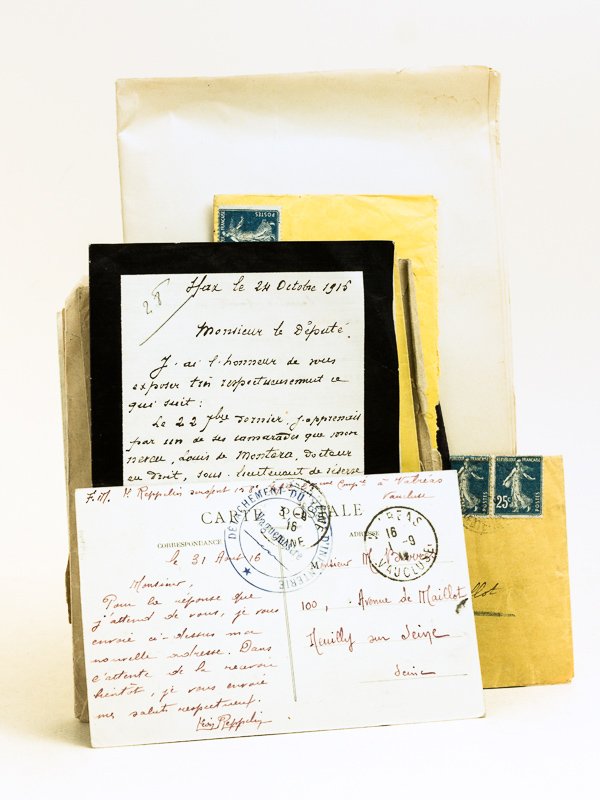 POSTES
28
Dax le 24 Octobre 1915
Monsieur le Député.
J'ai l'honneur de vous
exposer très respectueusement ce
qui suit :
Le 22 7bre dernier j'apprenais
par un de ses camarades que mon
neveu, Louis de Montera, docteur
en droit, sous-lieutenant de réserve
POSTES
REPUBLIQUE
25c
POSTES
F.M. Reppelin sergent à Valréas
Vaucluse
CARTE POSTALE
CORRESPONDANCE
ADRESSE
DÉTACHEMENT DU D'INFANTERIE
16
16
1 -9
VAUCLUSE
le 31 Août 16
Monsieur,
Pour la réponse que
j'attend de vous, je vous
envoie ci-dessus ma
nouvelle adresse. Dans
l'attente de la recevoir
bientôt, je vous envoie
mes saluts respectueux.
Léon Reppelin
Monsieur M.
100, Avenue de Maillot
Neuilly sur Seine
Seine